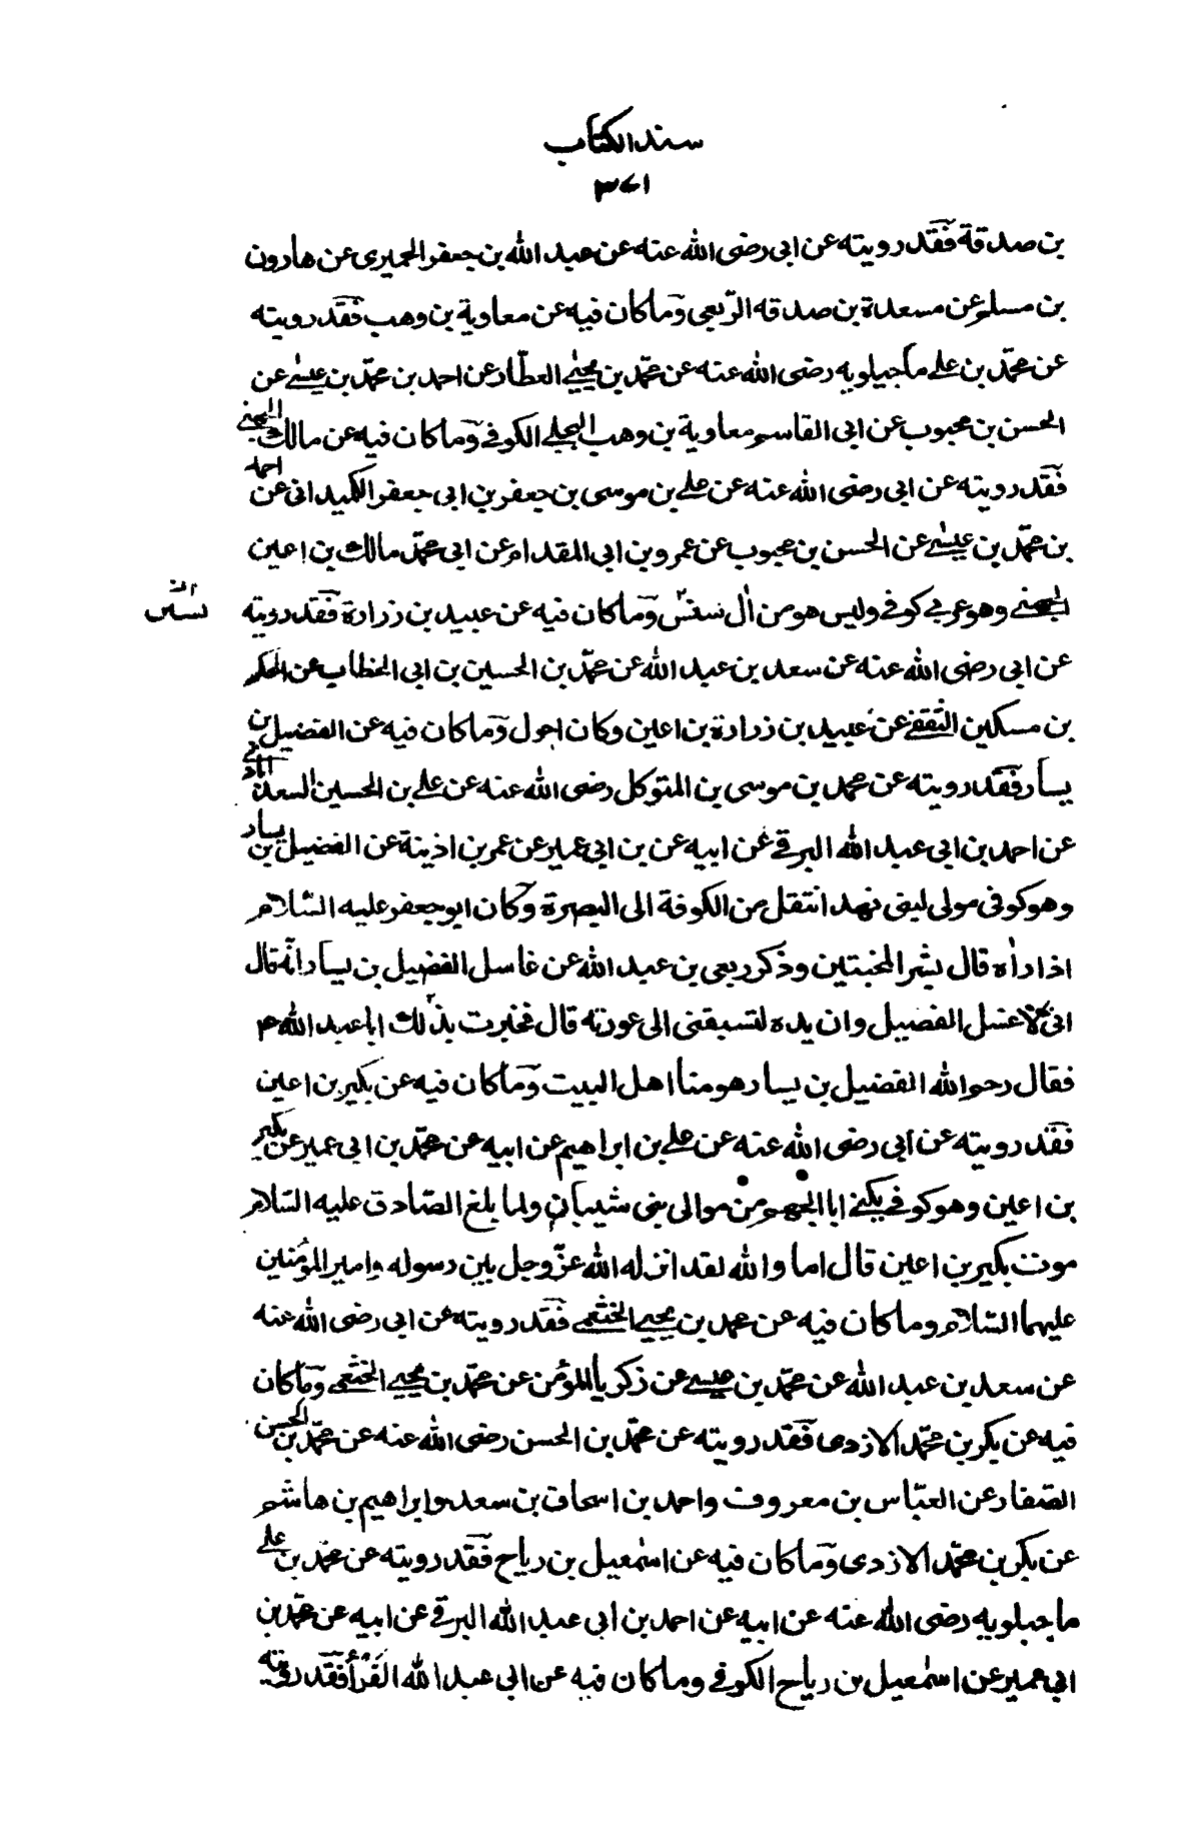 سند الکتاب
۳۷۱
بن صدقة فقد رويته عن ابى رضى الله عنه عن عبد الله بن جعفر الحميرى عن هارون
بن مسلم عن مسعدة بن صدقه الربعى وما كان فيه عن معاوية بن وهب فقد رويته
عن محمّد بن على ماجيلويه رضى الله عنه عن محمّد بن يحيى العطّار عن احمد بن محمّد بن عيسى عن
الحسن بن محبوب عن ابى القاسم معاوية بن وهب البجلى الكوفى وما كان فيه عن مالك الجهنى
فقد رويته عن ابى رضى الله عنه عن على بن موسى بن جعفر بن ابى جعفر الكميدانى عن احمد
بن محمّد بن عيسى عن الحسن بن محبوب عن عمرو بن ابى المقدام عن ابى محمّد مالك بن اعين
الجهنى وهو عربى كوفى وليس هو من اٰل سنسن وما كان فيه عن عبيد بن زرارة فقد رويته
عن ابى رضى الله عنه عن سعد بن عبد الله عن محمّد بن الحسين بن ابى الخطاب عن الحكم
بن مسكين الثقفى عن عبيد بن زرارة بن اعين وكان احول وما كان فيه عن الفضيل بن
يسار فقد رويته عن محمد بن موسى بن المتوكل رضى الله عنه عن على بن الحسين السعدابادى
عن احمد بن ابى عبد الله البرقى عن ابيه عن بن ابى عمير عن عمر بن اذينة عن الفضيل بن يسار
وهو كوفى مولى لبنى نهد انتقل من الكوفة الى البصرة وكان ابو جعفر عليه السّلام
اذا راٰه قال بشر المخبتين وذكر ربعى بن عبد الله عن غاسل الفضيل بن يسار انّه قال
انى لاغسل الفضيل وان يده لتسبقنى الى عورته قال فخبرت بذلك ابا عبد الله م
فقال رحم الله الفضيل بن يسار هو منا اهل البيت وما كان فيه عن بكير بن اعين
فقد رويته عن ابى رضى الله عنه عن على بن ابراهيم عن ابيه عن محمّد بن ابى عمير عن بكير
بن اعين وهو كوفى يكنى ابا الجهم من موالى بنى شيبان ولما بلغ الصّادق عليه السّلام
موت بكير بن اعين قال اما والله لقد انزله الله عزّوجل بين رسوله وامير المؤمنين
عليهما السّلام وما كان فيه عن محمد بن يحيى الخثعمى فقد رويته عن ابى رضى الله عنه
عن سعد بن عبد الله عن محمّد بن عيسى عن زكريا المؤمن عن محمّد بن يحيى الخثعمى وما كان
فيه عن بكر بن محمّد الازدى فقد رويته عن محمّد بن الحسن رضى الله عنه عن محمّد بن الحسن
الصّفار عن العبّاس بن معروف واحمد بن اسحاق بن سعد وابراهيم بن هاشم
عن بكر بن محمّد الازدى وما كان فيه عن اسمٰعيل بن رياح فقد رويته عن محمّد بن على
ماجيلويه رضى الله عنه عن ابيه عن احمد بن ابى عبد الله البرقى عن ابيه عن محمّد بن
ابى عمير عن اسمٰعيل بن رياح الكوفى وما كان فيه عن ابى عبد الله الفرّاء فقد رويته